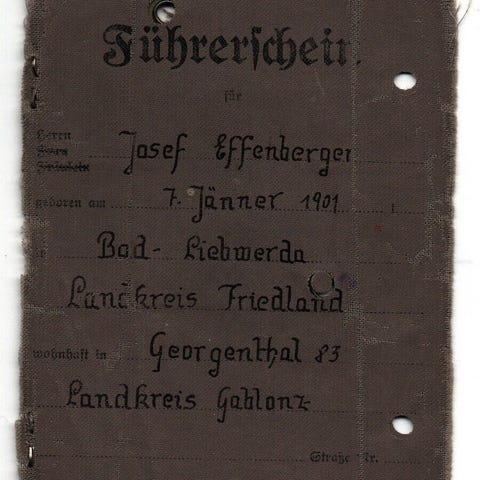 Führerschein
für
Herrn
Frau
Fräulein
Josef Effenberger
geboren am 7. Jänner 1901
Bad- Liebwerda
Landkreis Friedland
wohnhaft in Georgenthal 83
Landkreis Gablonz
Straße Nr.